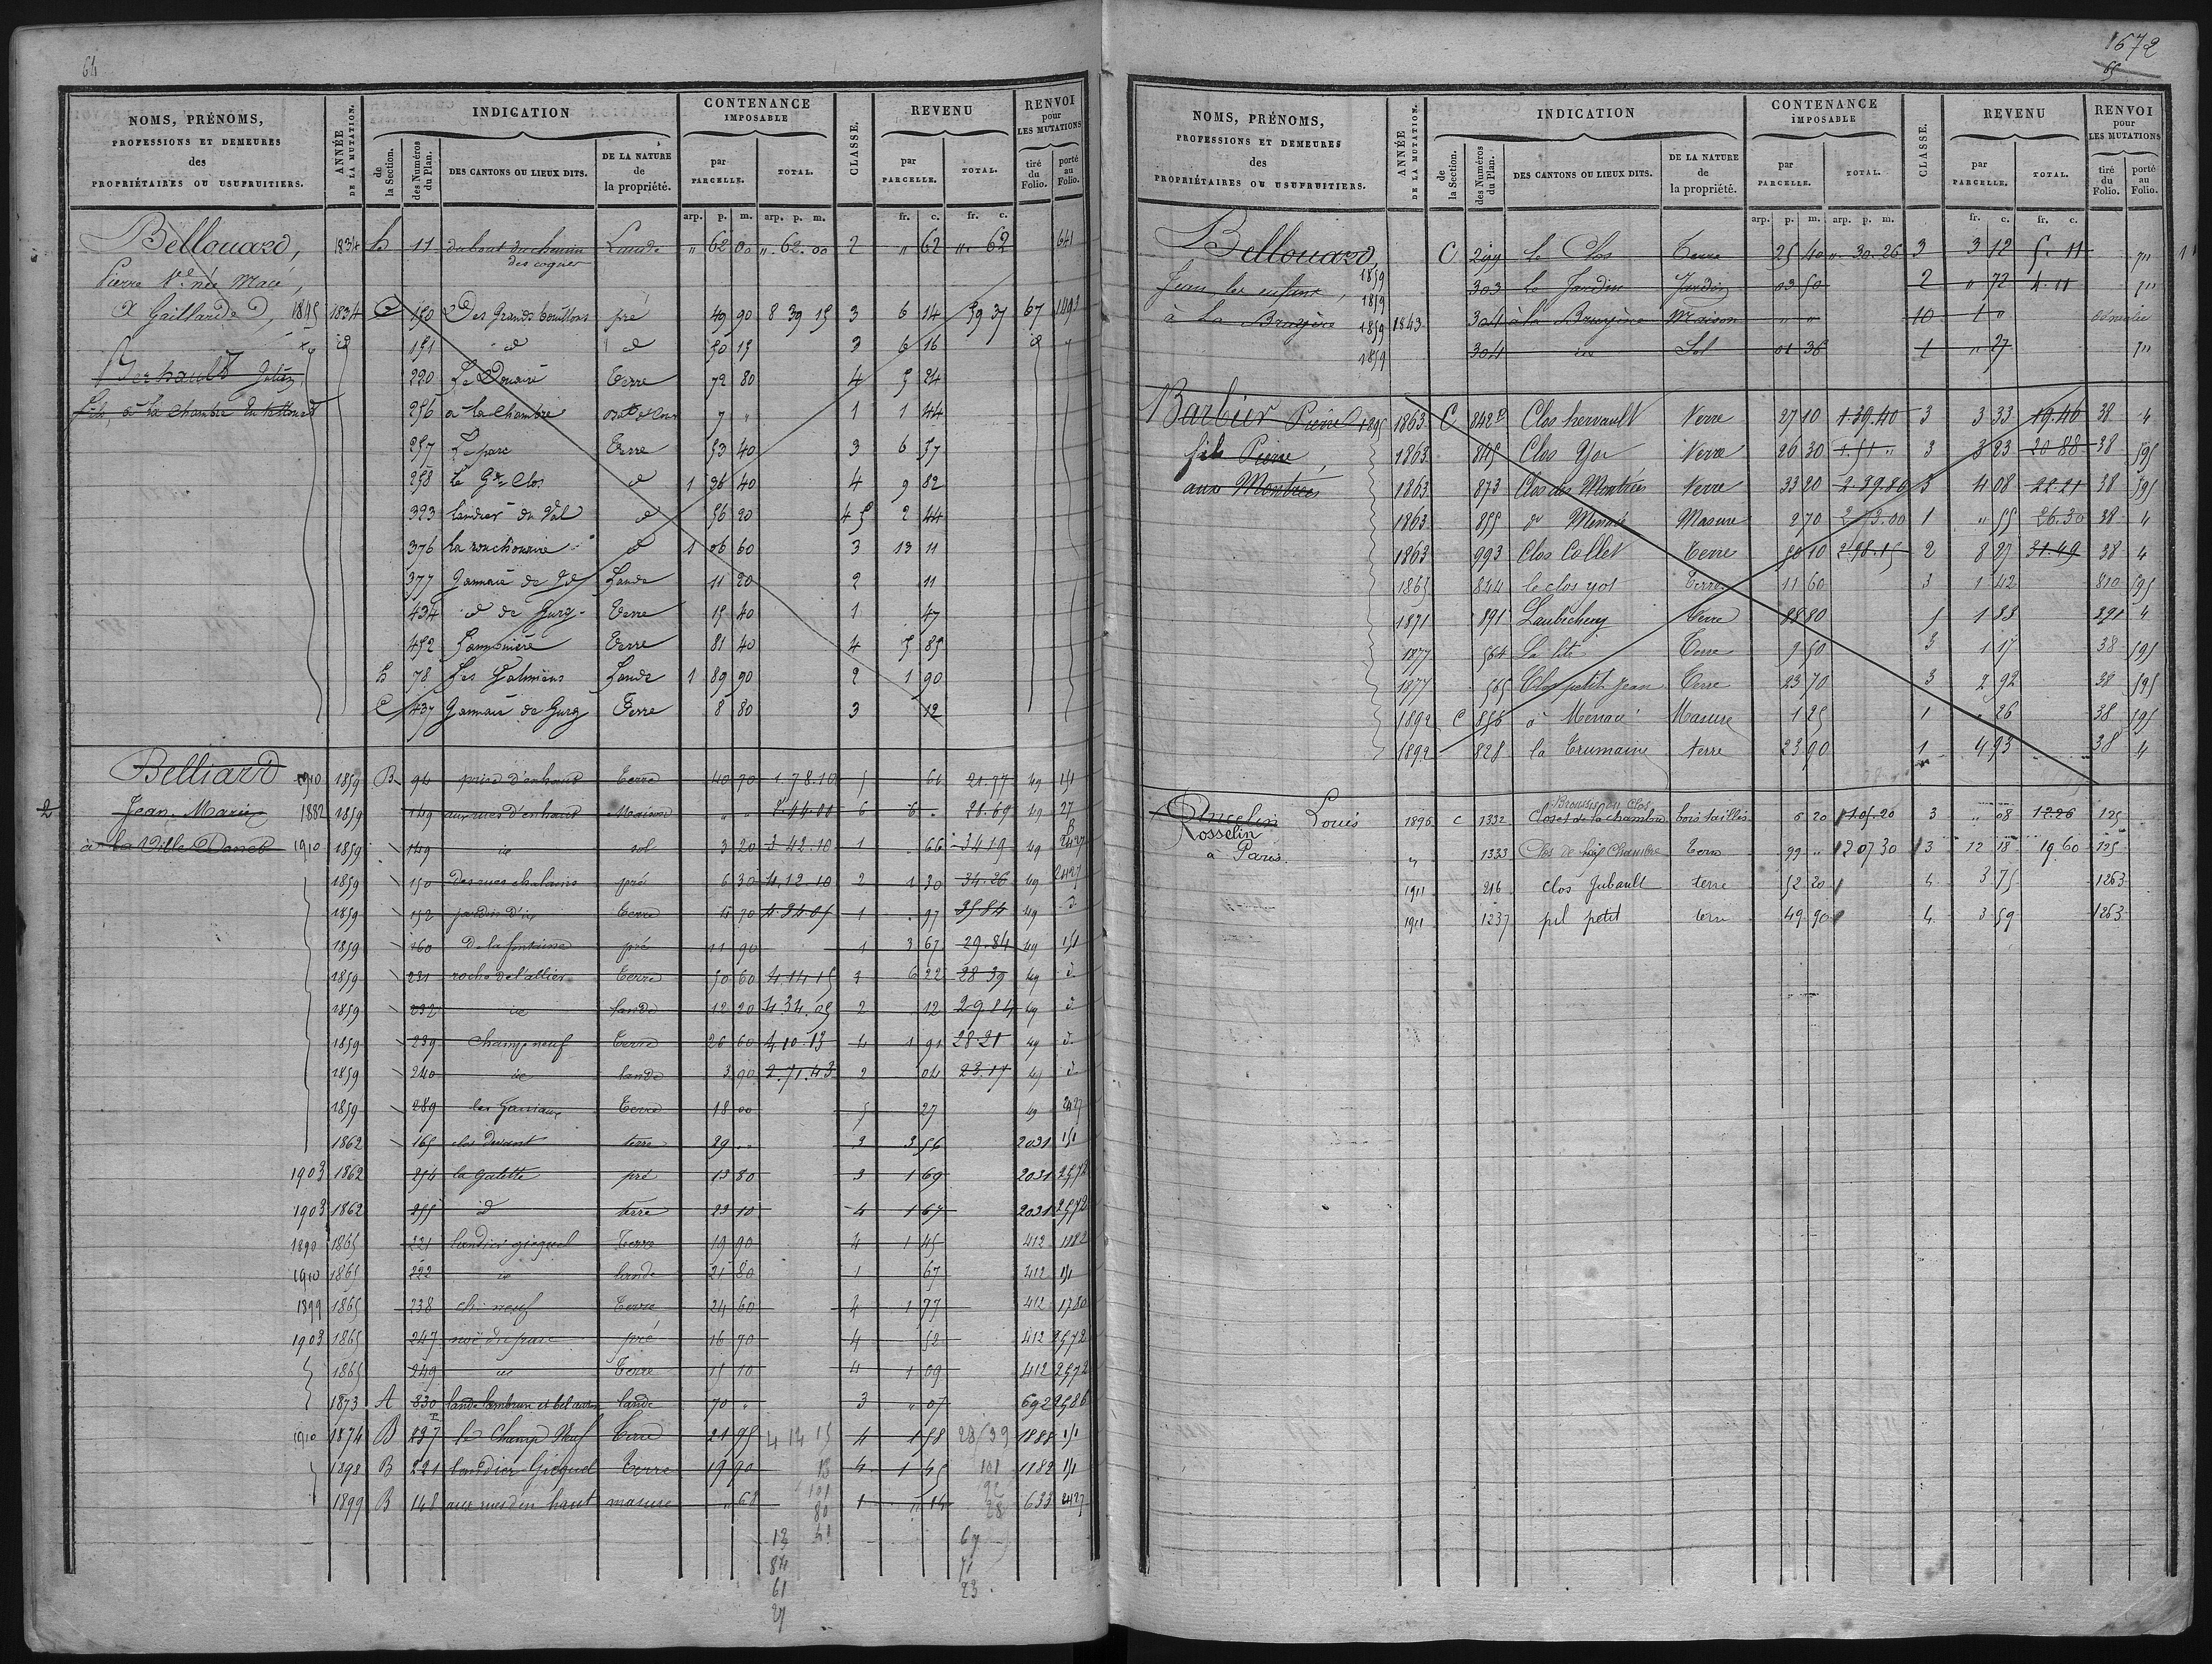 64
NOMS, PRÉNOMS, PROFESSIONS ET DEMEURES des PROPRIÉTAIRES OU USUFRUITIERS.
ANNÉE DE LA MUTATION.
INDICATION
de la Section.
des Numéros du Plan.
DES CANTONS OU LIEUX DITS.
DE LA NATURE de la propriété.
CONTENANCE IMPOSABLE
par PARCELLE.
TOTAL.
CLASSE.
REVENU
par PARCELLE.
TOTAL.
RENVOI pour LES MUTATIONS
tiré du Folio.
porté au Folio.
arp. p. m. arp. p. m. fr. c. fr. c.
Bellouard, 1834 11 du bout du chemin Lande " 62 00 ". 62. 00 2 " 62 " 62 641
des coquer
Pierre Ve née Macé,
à Gaillarde 1845 1834 C 150 Des Grands bouillons pré 49 90 8 39 15 3 6 14 59 37 67 1491
151 d d 50 15 3 6 16
Berhault Julien 220 Le Douaire Terre 72 80 4 5 24
fils, à la Chambre 256 a la Chambre 7 " 1 1 44
257 Le parc Terre 53 40 3 6 57
258 Le Gd Clos d 1 36 40 4 9 82
323 landier du Val d 56 20 4 5 2 44
376 d 1 06 60 3 13 11
377 Lande 11 20 2 11
434 d de Gurg Terre 15 40 1 47
452 Terre 81 40 4 5 85
78 Les Lande 1 89 90 2 1 90
C 437 de Gurg Terre 8 80 3 12
Belliard 1910 1859 B 94 prise d'enhaut Terre 40 70 1 78.10 5 61 21.77 49 151
2 Jean Marie 1882 1859 149 aux rues d'enhaut Maison " " 2.44.00 6 6 . 28.69 49 27
à la Ville Danet 1910 1859 149 id sol 3 20 3 42.10 1 66 34 19 49 2427
1859 150 des rues chalains pré 6 30 4.12.10 2 1 30 34.26 49 2427
1859 152 jardin d'id Terre 4 70 4.24.05 1 . 97 35 84 49 d
1859 160 de la fontaine pré 11 90 1 3 67 29.84 49 151
1859 231 roche de l'allier Terre 50 60 4.14 15 3 6 22 28 39 49 d
1859 232 id lande 12 20 4.34.05 2 12 29.84 49 d
1859 239 Champ neuf Terre 26 60 4 10 13 4 1 91 28 21 49 d
1859 240 id lande 3 90 2.71.43 2 04 23.17 49 d
1859 289 Terre 18 00 5 27 49 2427
1862 165 clos Devant terre 29 .. 3 3 56 2031 151
1903 1862 254 la galette pré 13 80 3 1 69 2031 2572
1903 1862 255 d terre 23 10 4 1 67 2031 2572
1890 1865 221 landier gicquel Terre 19 90 4 1 45 412 1182
1910 1865 222 id lande 21 80 1 67 412 151
1899 1865 238 ch. neuf Terre 24 60 4 1 77 412 1780
1903 1865 247 noë du parc pré 16 70 4 52 412 2572
1865 249 id Terre 15 10 4 1 09 412 2572
1873 A 830 lande lambrun et lande 70 " 3 " 07 692 2586
1910 1874 B 237 le Champ Neuf Terre 21 95 4 14 15 4 1 58 28 39 1888 151
1898 B 221 landier Gicquel Terre 19 90 13 4 1 45 101 1182 151
1899 B 148 aux rues d'en haut masure " 68 101 1 " 14 92 633 2427
80 28
13 41 67
84 71
61 23
27
1672
65
NOMS, PRÉNOMS, PROFESSIONS ET DEMEURES des PROPRIÉTAIRES OU USUFRUITIERS.
ANNÉE DE LA MUTATION.
INDICATION
de la Section.
des Numéros du Plan.
DES CANTONS OU LIEUX DITS.
DE LA NATURE de la propriété.
CONTENANCE IMPOSABLE
par PARCELLE.
TOTAL.
CLASSE.
REVENU
par PARCELLE.
TOTAL.
RENVOI pour LES MUTATIONS
tiré du Folio.
porté au Folio.
arp. p. m. arp. p. m. fr. c. fr. c.
Bellouard, C 299 Le Clos Terre 25 40 ". 30. 26 3 3 12 5. 11
Jean les enfants, 1859 303 Le Jardin Jardin 03 50 2 " 72 4. 11
à La Bruyère 1859 1843 304 à la Bruyère Maison " " 10 1 0 démolie
1859 304 id Sol 01 36 1 " 27
Barbier Pierre 1895 1863 C 842 P Clos hervault Terre 27 10 1 39.40 3 3 33 19.46 38 4
fils Pierre, 1863 845 Clos Yor Terre 26 30 1.51 " 3 3 23 20 88 38 595
aux Montrées 1863 873 Clos des Montrées Terre 33 20 2.89.80 3 4 08 22.21 38 595
1863 855 Masure 2 70 2 73.00 1 " 55 26.30 38 4
1863 993 Clos Collet Terre 50 10 2.98.15 2 8 27 31.49 38 4
1865 844 le clos yot Terre 11 60 3 1 42 810 595
1871 891 Terre 88 80 5 1 83 291 4
1877 564 Terre 9 50 3 1 17 38 595
1877 565 Clos petit Jean Terre 23 70 3 2 92 38 595
1892 C 856 à Menacé Masure 1 25 1 " 26 38 595
1892 828 la Trumaine terre 23 90 1 4 93 38 4
Brousses ou Clos
Rosselin Louis 1896 C 1332 Closet de la chambre bois taillis 6 20 1 05.20 3 " 08 12.26 125
Rosselin
à Paris. " 1333 Clos de Chambre Terre 99 " 2 07 30 3 12 18 19 60 125
1911 216 clos Jubault terre 52 20 4 3 75 1263
1911 1237 pil petit terre 49 90 4 3 59 1263